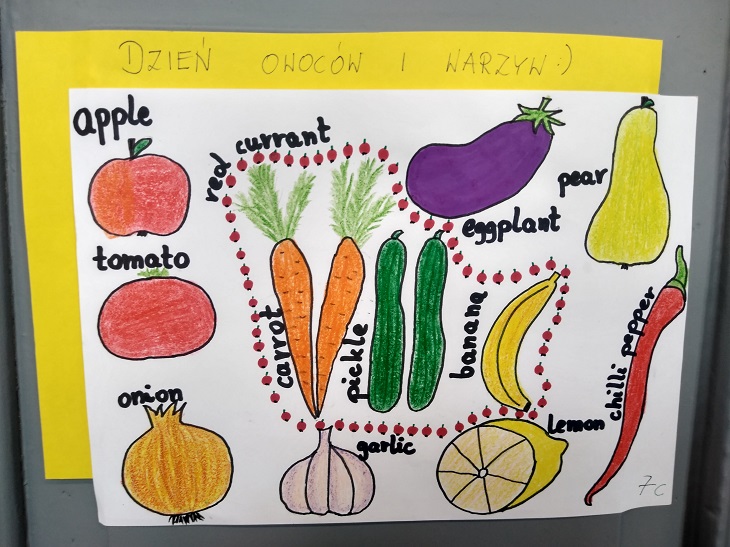 DZIEŃ OWOCÓW I WARZYW :)
apple
red currant
pear
eggplant
tomato
carrot
pickle
banana
chilli pepper
onion
garlic
lemon
7c